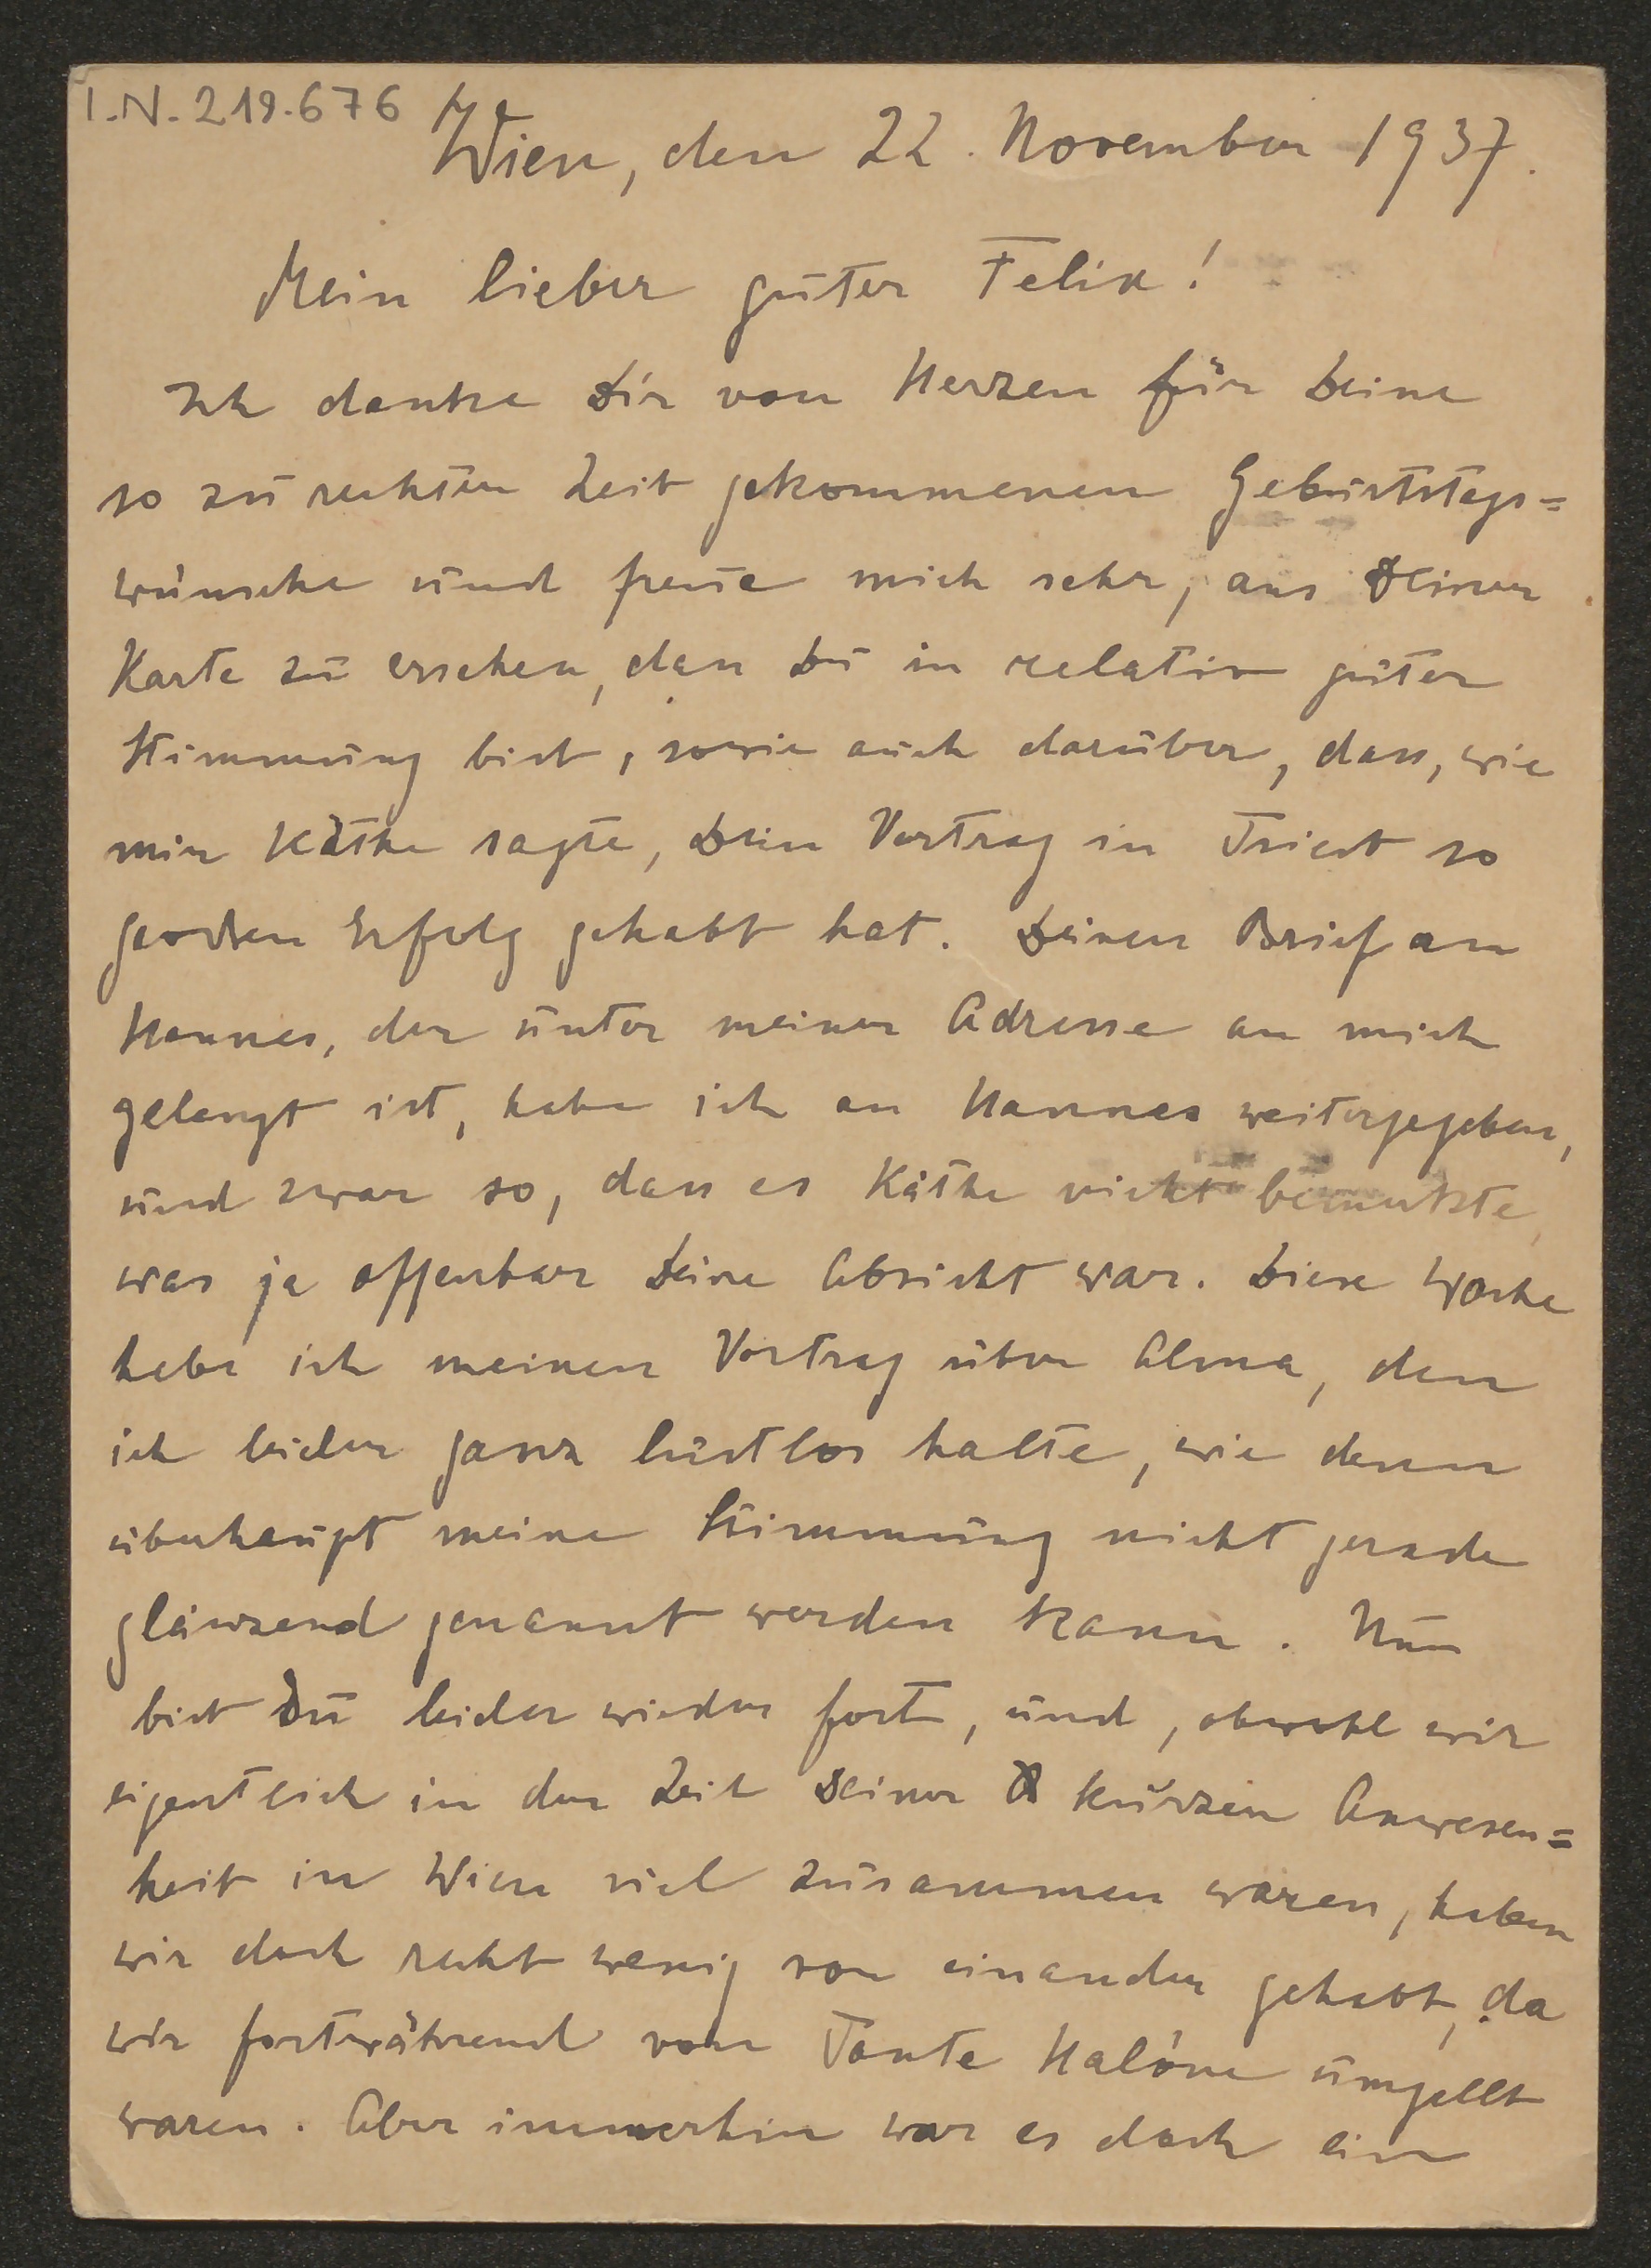 I.N. 219.676
Wien, den 22. November 1937.
Mein lieber guter Felix!
Ich danke Dir von Herzen für Deine
so zu rechten Zeit gekommenen Geburtstags=
wünsche und freue mich sehr, aus Deiner
Karte zu ersehen, dass Du in relativ guter
Stimmung bist, sowie auch darüber, dass, wie
mir Käthe sagte, Dein Vortrag in Triest so
grossen Erfolg gehabt hat. Deinen Brief an
Hannes, der unter meiner Adresse an mich
gelangt ist, habe ich an Hannes weitergegeben,
und zwar so, dass es Käthe nicht bemerkte,
was ja offenbar Deine Absicht war. Diese Woche
habe ich meinen Vortrag über Alma, den
ich leider ganz lustlos halte, wie denn
überhaupt meine Stimmung nicht gerade
glänzend genannt werden kann. Nun
bist Du leider wieder fort, und, obwohl wir
eigentlich in der Zeit Deiner kurzen Anwesen=
heit in Wien viel zusammen waren, haben
wir doch recht wenig von einander gehabt, da
wir fortwährend von Tante Malöne umgellt
waren. Aber immerhin war es doch ein